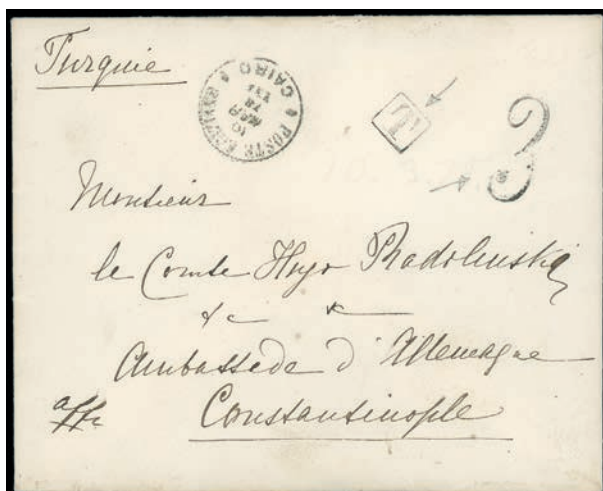 Turquie
POSTE EGIZIANE
CAIRO
10
MAR
78
T
3
Monsieur
le Comte Hugo Radolinski
&c &
Ambassade d'Allemagne
Constantinople